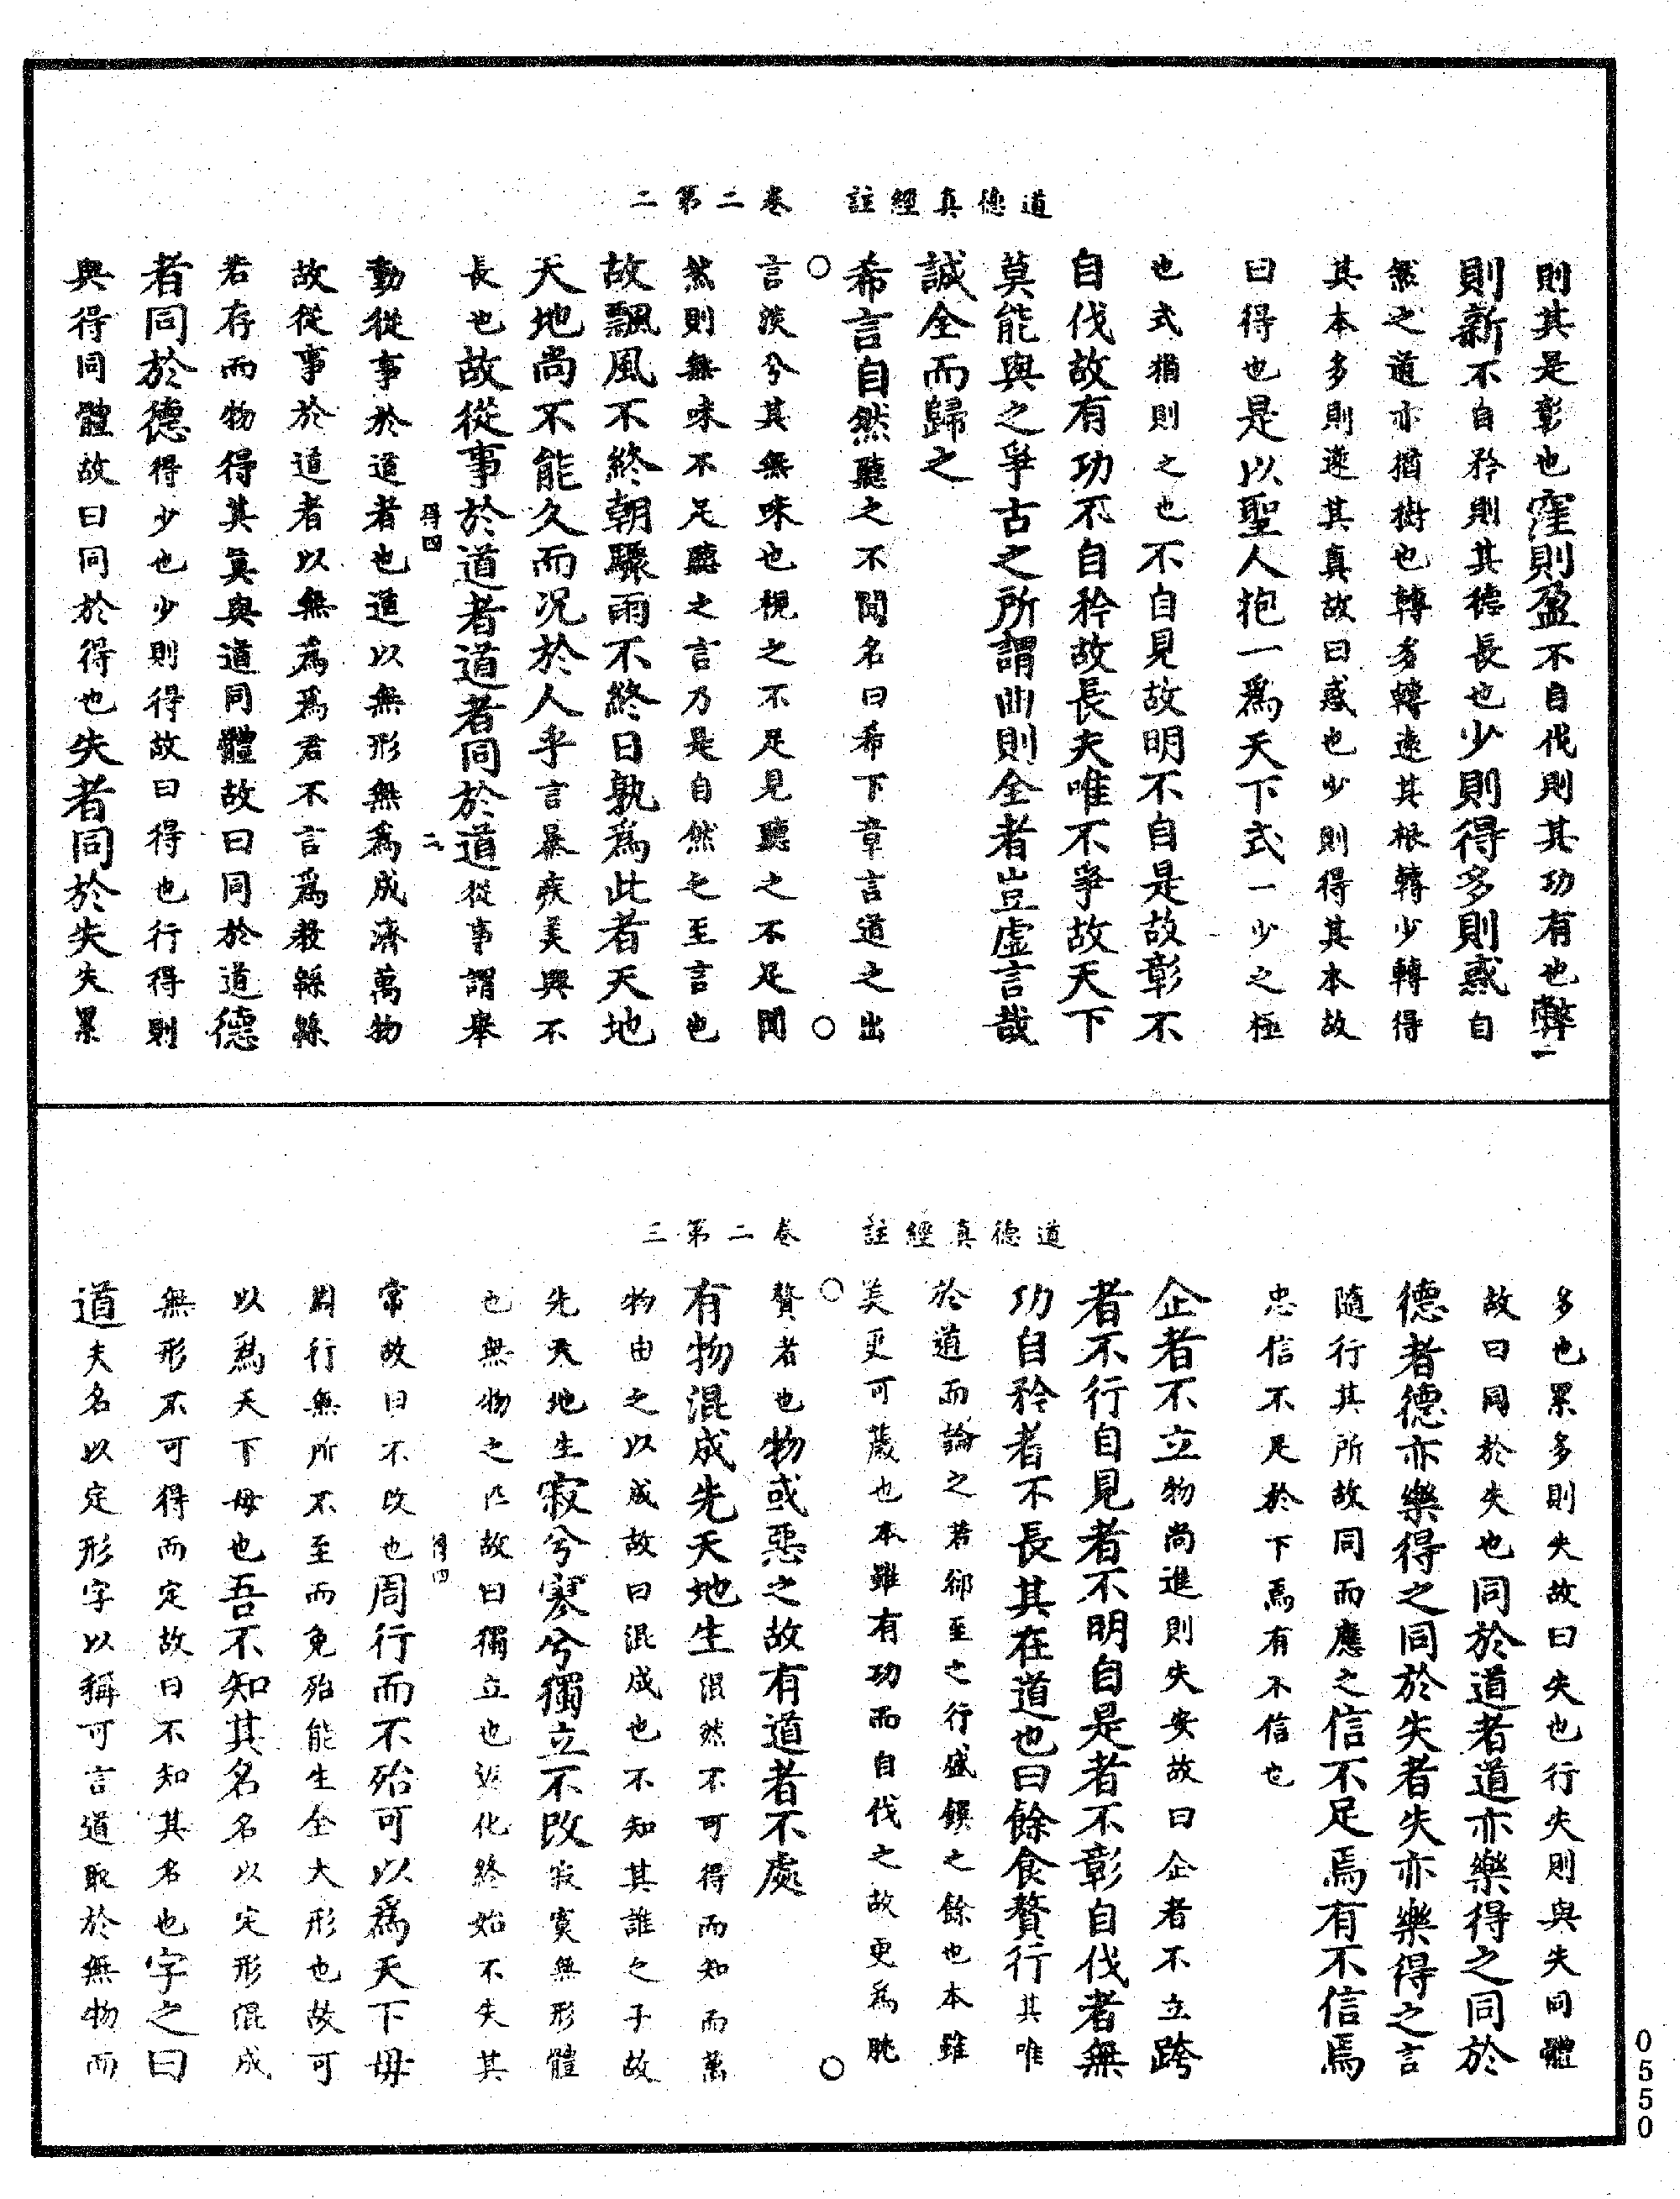 道德真經註　卷二第二
則其是彰也窪則盈不自伐則其功有也弊一
則新不自矜則其德長也少則得多則惑自
然之道亦猶樹也轉多轉遠其根轉少轉得
其本多則遠其真故曰惑也少則得其本故
曰得也是以聖人抱一爲天下式一少之極
也式猶則之也不自見故明不自是故彰不
自伐故有功不自矜故長夫唯不爭故天下
莫能與之爭古之所謂曲則全者豈虛言哉
誠全而歸之
希言自然聽之不聞名曰希下章言道之出
○　○
言淡兮其無味也視之不足見聽之不足聞
然則無味不足聽之言乃是自然之至言也
故飄風不終朝驟雨不終日孰爲此者天地
天地尚不能久而况於人乎言暴疾美興不
長也故從事於道者道者同於道從事謂舉
得四　二
動從事於道者也道以無形無爲成濟萬物
故從事於道者以無爲爲君不言爲教緜緜
若存而物得其真與道同體故曰同於道德
者同於德得少也少則得故曰得也行得則
與得同體故曰同於得也失者同於失失累
道德真經註　卷二第三
多也累多則失故曰失也行失則與失同體
故曰同於失也同於道者道亦樂得之同於
德者德亦樂得之同於失者失亦樂得之言
隨行其所故同而應之信不足焉有不信焉
忠信不足於下焉有不信也
企者不立物尚進則失安故曰企者不立跨
者不行自見者不明自是者不彰自伐者無
功自矜者不長其在道也曰餘食贅行其唯
於道而論之若郤至之行盛饌之餘也本雖
美更可薉也本雖有功而自伐之故更爲肬
○　○
贅者也物或惡之故有道者不處
有物混成先天地生混然不可得而知而萬
物由之以成故曰混成也不知其誰之子故
先天地生寂兮寥兮獨立不改寂寞無形體
也無物之匹故曰獨立也返化終始不失其
常故曰不改也周行而不殆可以爲天下母
得四
周行無所不至而免殆能生全大形也故可
以爲天下母也吾不知其名名以定形混成
無形不可得而定故曰不知其名也字之曰
道夫名以定形字以稱可言道取於無物而
0550